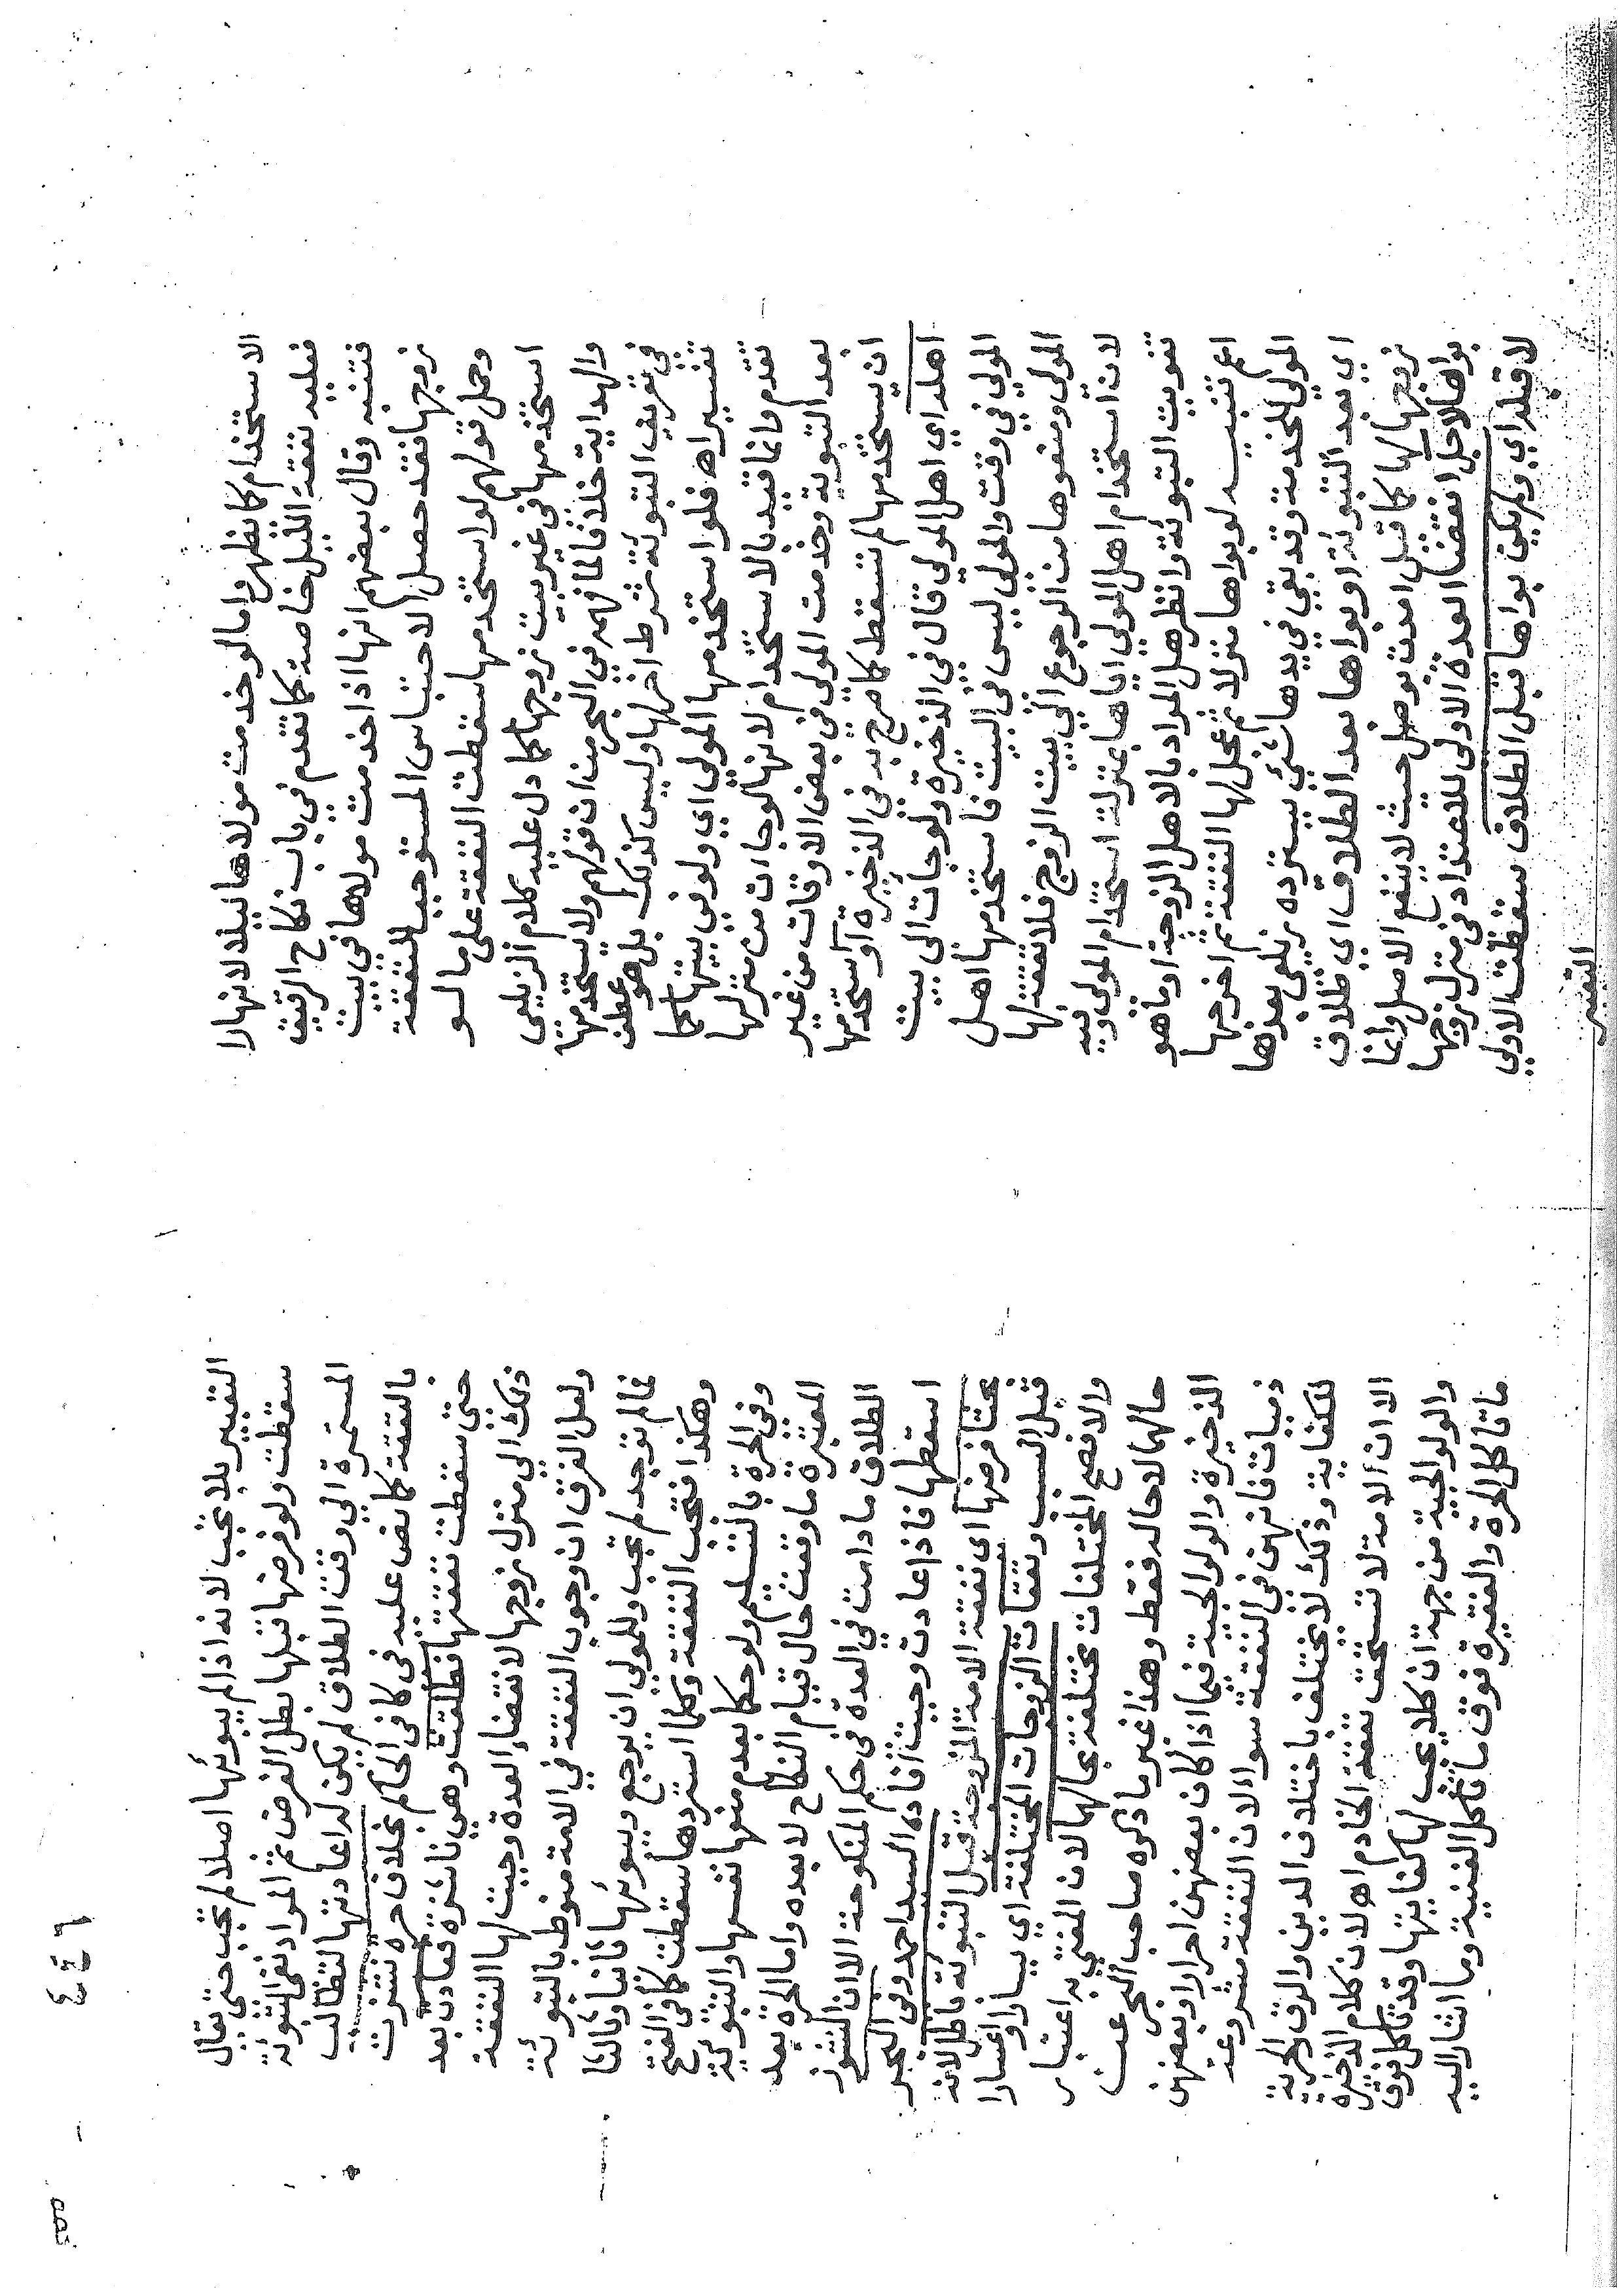 الاستخدام كما يظهر واما لو خدمت مولاها ليلا لانها لا
فعليه نفقة الليل خاصة كما تقدم في باب نكاح الرقيق
فتنبه وقال بعضهم انها اذا خدمت مولاها في بيت
زوجها فقد حصل الاحتباس المستوجب للنفقة
وحمل قولهم لو استخدمها سقطت النفقة على ما لو
استخدمها في غير بيت زوجها كما دل عليه كلام الزيلعي
والهداية خلافا لما فهمه في البحر من ان قولهم ولا يستخدمها
في تعريف التبوئة شرط اخر لها وليس كذلك بل هو عطف
تفسير اهـ فلو استخدمها المولى اي ولو في بيتها كما
تقدم وانما قيد بالاستخدام لانها لو جاءت من منزلها
بعد التبوية وخدمت المولى في بعض الاوقات من غير
ان يستخدمها لم تسقط كما صرح به في الذخيرة او استخدمها
اهله اي اهل المولى قال في الذخيرة ولو جأت الى بيت
المولى في وقت والمولى ليس في البيت فاستخدمها اهل
المولى ومنعوها من الرجوع الى بيت الزوج فلا نفقة لها
لان استخدام اهل المولى اياها بمنزلة استخدام المولى وفيه
تفويت التبوئة وانظر هل المراد بالاهل الزوجة او ما هو
اعم تنبيه لو بواها منزلا ثم عجل لها النفقة ثم اخرجها
المولى للخدمة وقد بقي في يدها شئ يسترده زيلعي بعدها
اي بعد التبوئة او بواها بعد الطلاق اي طلاق
زوجها لها كما قبل امدت بوصل حيث لا ينفع الاصل وانما
بواها لاجل انقضا العدة الاولى للاعتداد في منزل زوجها
لا قبله اي ولم يكن بواها قبل الطلاق سقطت الاولى
التعبير
التعبير بلا تجب لانه اذا لم يبوئها اصلا لم تجب حتى يقال
سقطت ولو فرضها قبلها بطل الفرض ثم المراد نفي التبوئة
المستمرة الى وقت الطلاق لم يكن له اعادتها لتطالب
بالنفقة كما نص عليه في كافي الحاكم بخلاف حرة نشزت
حتى سقطت نفقتها فطلقت وهي ناشزة فعادت بعد
ذلك الى منزل زوجها لانقضاء العدة وجبت لها النفقة
ولعل الفرق ان وجوب النفقة في الامة منوط بالتبوئة
فما لم توجد لم تجب وللمولى ان يرجع ويبوئها ثانيا وثالثا
وهكذا فتجب النفقة وكلما استردها سقطت كما في الفتح
وفي الحرة بالتسليم ولو حكما بعدم منعها نفسها والتبوئة
المعتبرة ما وقعت حال قيام النكاح لا بعده واما الحرة بعد
الطلاق ما دامت في العدة في حكم المنكوحة الا ان النشوز
اسقطها فاذا عادت وجبت افاده السيد احمد وفي البحر
بحثا فرضها اي نفقة الامة المزوجة قبل التبوئة باطل لانه
قبل السبب ونفقات الزوجات المختلفة اي يسارا او اعسارا
والافصح المختلفات مختلفة بحالهما لان المفتى به اعتبار
حالهما لا حاله فقط وهذا غير ما ذكره صاحب البحر عن
الذخيرة والولوالجية فيما اذا كان بعضهن احرارا وبعضهن
ذميات فانهن في النفقة سواء لان النفقة مشروعة
للكفاية وذلك لا يختلف باختلاف الدين والرق والحرية
الا ان الامة لا تستحق نفقة الخادم اهـ لان كلام الذخيرة
والولوالجية من جهة ان كلا يجب لها كفايتها وقد تاكل فوق
ما تاكل الحرة والفقيرة فوق ما تاكل الغنية وما اشار اليه
٤٤٦